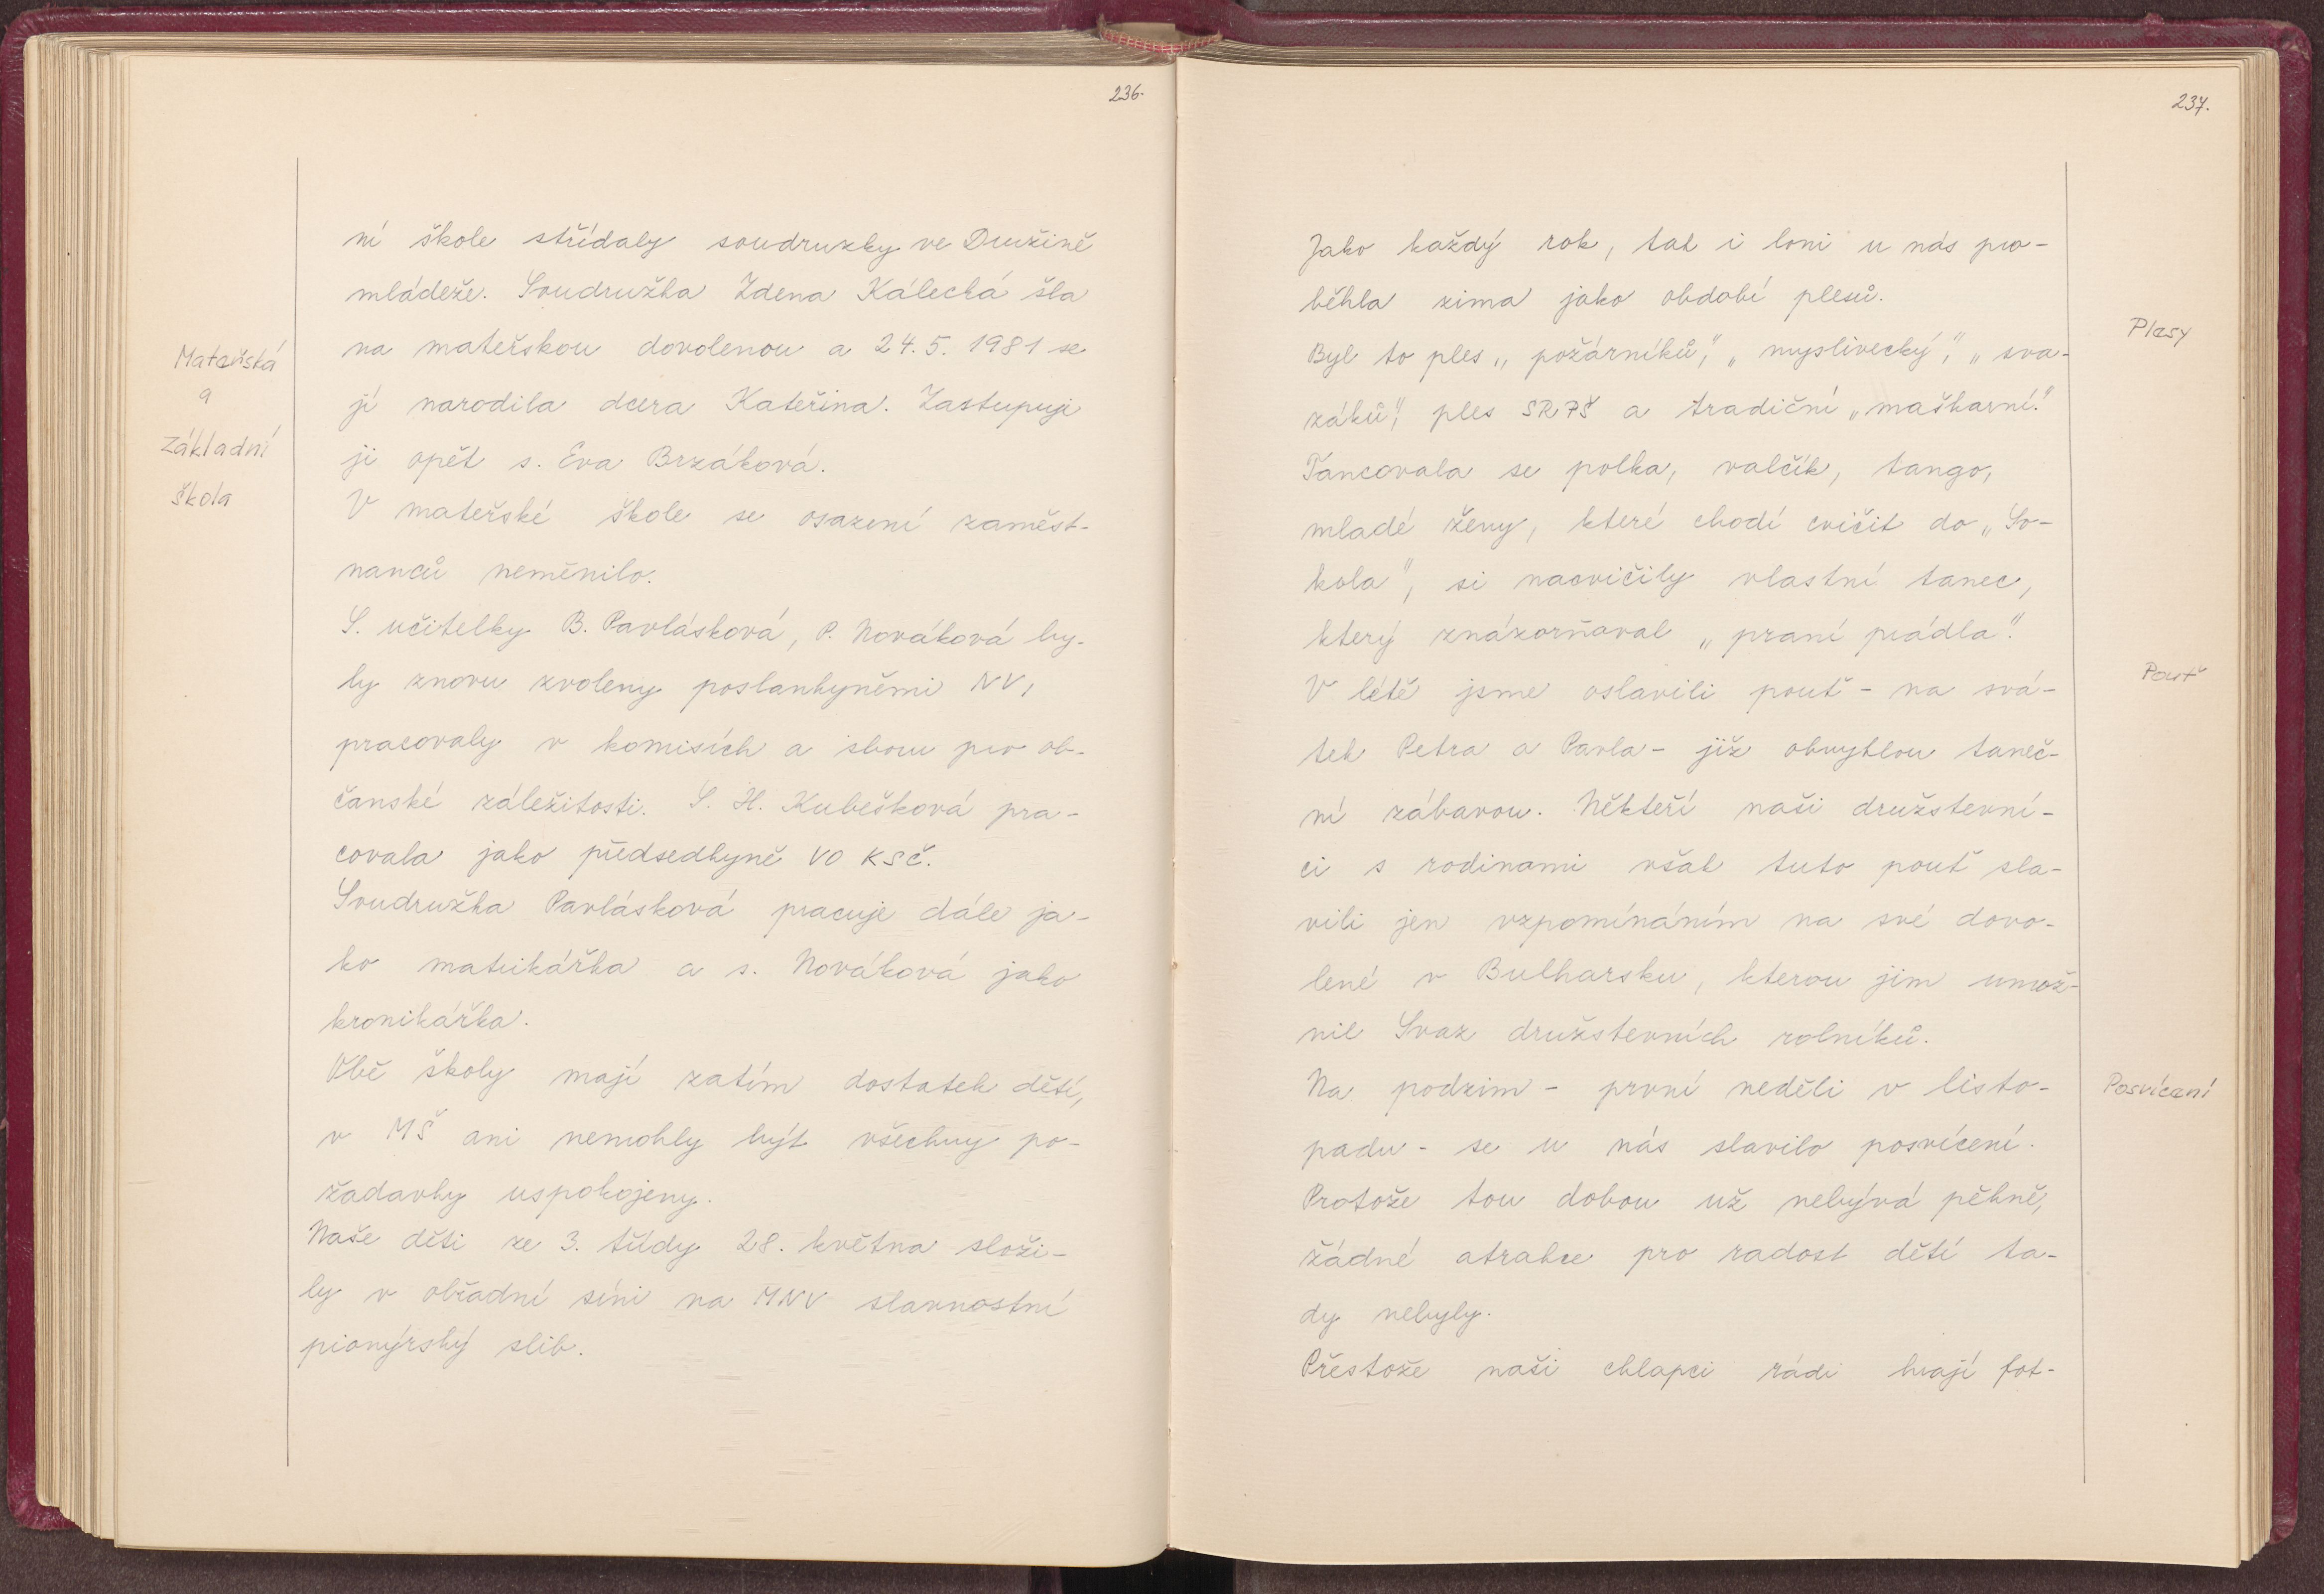 236.
ní škole střídaly soudruzky ve Družině
mládeže. Soudružka Zdena Kálecká šla
na mateřskou dovolenou a 24.5. 1981 se
jí narodila dcera Kateřina. Zastupuje
ji opět s. Eva Brzáková.
V mateřské škole se osazení zaměst-
nanců neměnilo.
S. učitelky B. Pavlásková, P. Nováková by-
ly znovu zvoleny poslankyněmi NV,
pracovaly v komisích a sboru pro ob-
čanské záležitosti. S. H. Kubešková pra-
covala jako předsedkyně VO KSČ.
Soudružka Pavlásková pracuje dále ja-
ko matrikářka a s. Nováková jako
kronikářka.
Obě školy mají zatím dostatek dětí,
v MŠ ani nemohly být všechny po-
žadavky uspokojeny.
Naše děti ze 3. třídy 28. května složi-
ly v obřadní síni na MNV slavnostní
pionýrský slib.
Mateřská
a
Základní
škola
237.
Jako každý rok, tak i loni u nás pro-
běhla zima jako období plesů.
Byl to ples „požárníků," „myslivecký", „sva-
záků", ples SRPŠ a tradiční „maškarní."
Tancovala se polka, valčík, tango,
mladé ženy, které chodí cvičit do „So-
kola", si nacvičily vlastní tanec,
který znázorňoval „praní prádla."
V létě jsme oslavili pouť - na svá-
tek Petra a Pavla - již obvyklou taneč-
ní zábavou. Někteří naši družstevní-
ci s rodinami však tuto pouť sla-
vili jen vzpomínáním na své dovo-
lené v Bulharsku, kterou jim umož-
nil Svaz družstevních rolníků.
Na podzim - první neděli v listo-
padu - se u nás slavilo posvícení.
Protože tou dobou už nebývá pěkně,
žádné atrakce pro radost dětí ta-
dy nebyly.
Přestože naši chlapci rádi hrají fot-
Plesy
Pouť
Posvícení